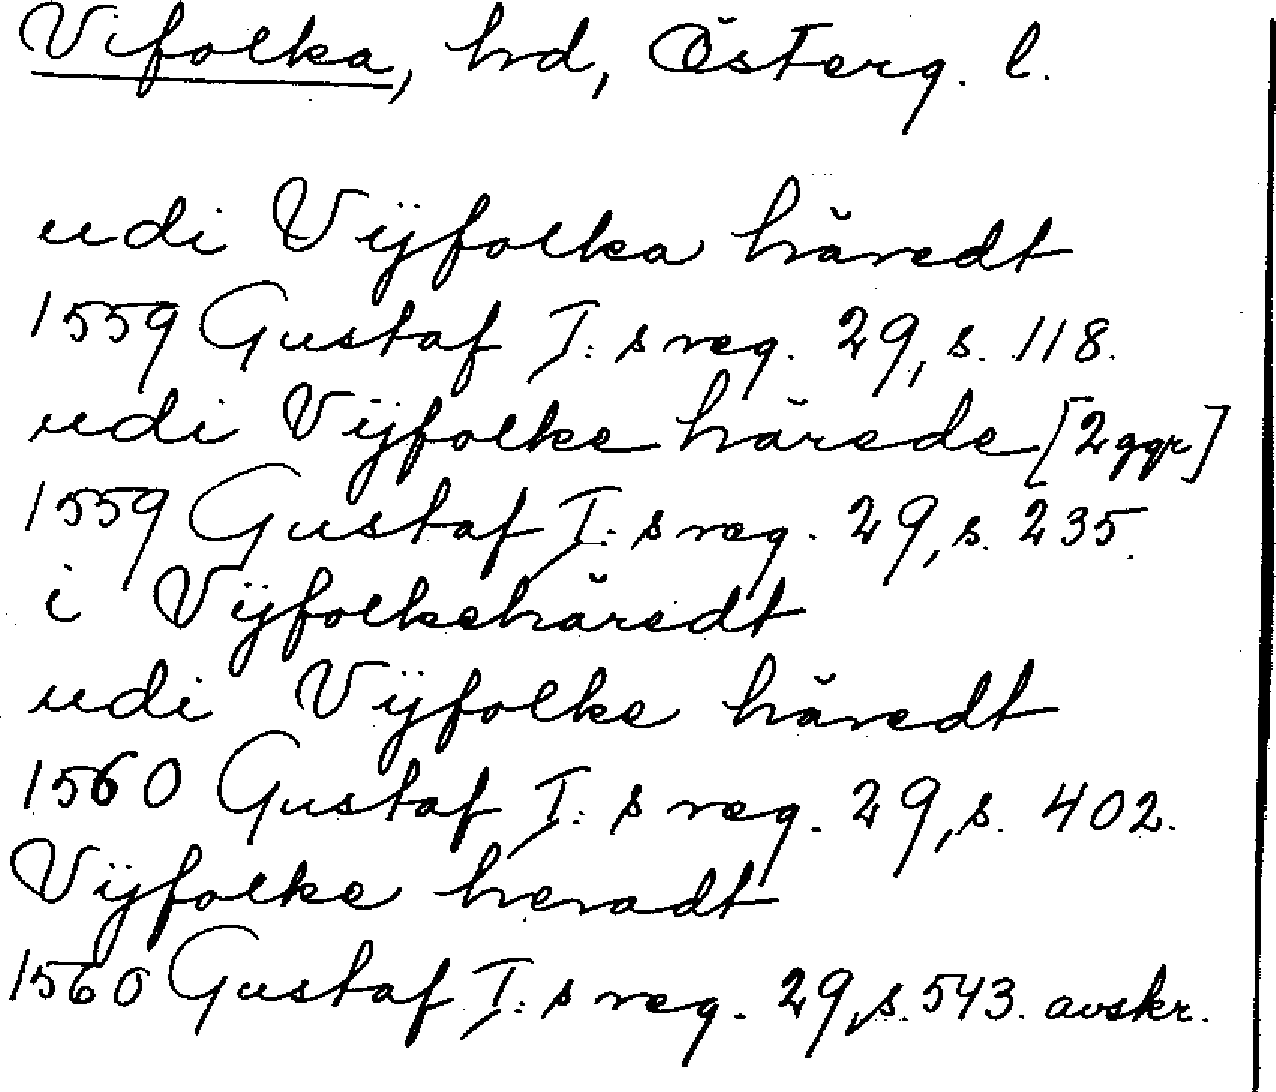 Vifolka, hd, Österg. l.
udi Vÿfolka häredt
1559 Gustaf I:s reg. 29, s. 118.
udi Vÿfolke härede [2 ggr]
1559 Gustaf I:s reg. 29, s. 235.
i Vÿfolkehäredt
udi Vÿfolke häredt
1560 Gustaf I:s reg. 29, s. 402.
Vÿfolke heradt
1560 Gustaf I:s reg. 29, s. 543. avskr.